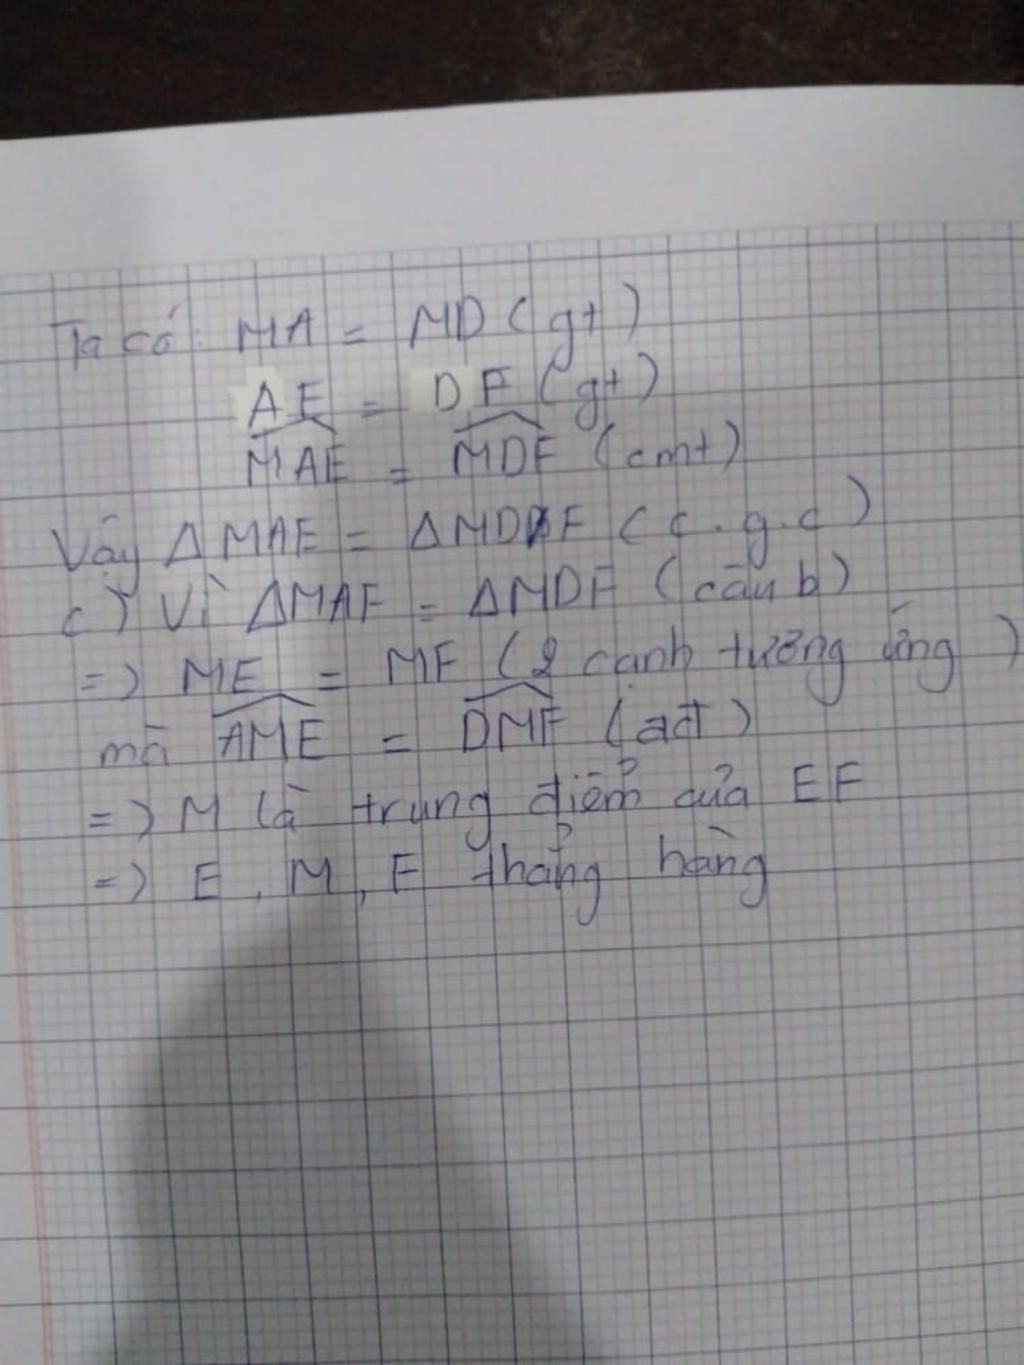 Ta có: MA = MD (gt)
AE = DF (gt)
MAE = MDF (cmt)
Vậy ΔMAE = ΔMDF (c.g.c)
c) Vì ΔMAE = ΔMDF (câu b)
=> ME = MF (2 cạnh tương ứng)
mà AME = DMF (đđ)
=> M là trung điểm của EF
=> E, M, F thẳng hàng